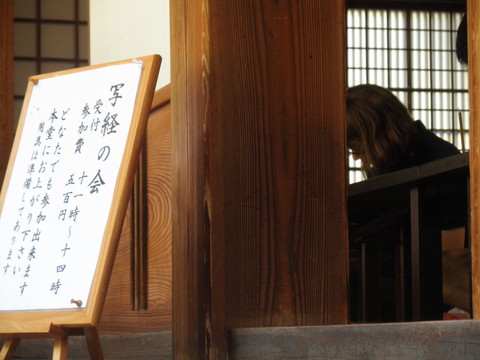 写経の会
受付　十一時〜十四時
参加費　五百円
どなたでも参加出来ます
本堂にお上がり下さい
用具は準備してあります